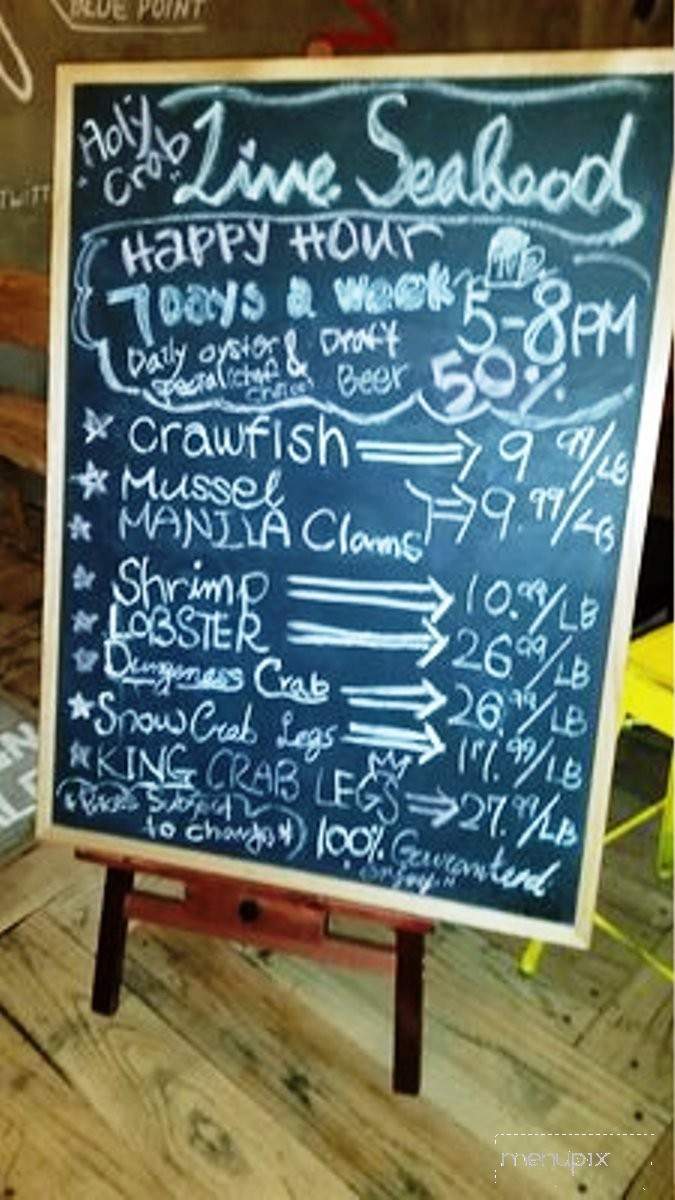 BLUE POINT
TWITT
"Holy Crab" Live Seafood
Happy Hour
7 Days a week 5-8PM
Daily oyster & Draft
special (chef choice) Beer 50%
Crawfish 9.99/LB
Mussel
MANILA Clams 9.99/LB
Shrimp 10.99/LB
LOBSTER 26.99/LB
Dungeness Crab 26.99/LB
Snow Crab Legs 17.99/LB
KING CRAB LEGS 27.99/LB
(*Prices Subject
to change*) 100% Guaranteed
menupix